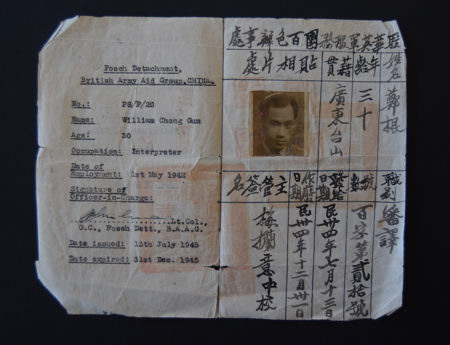 Poseh Detachment,
British Army Aid Group, CHINA.
No.: PS/P/20
Name: William Chong Gun
Age: 30
Occupation: Interpreter
Date of
Employment: 1st May 1942
Signature of
Officer-in-Charge:
Lt.Col.,
O.C., Poseh Dett., B.A.A.G.
Date issued: 13th July 1945
Date expired: 31st Dec. 1945
駐華英軍服務團百色辦事處
姓名
鄭根
年齡
三十
籍貫
廣東台山
貼相片處
職別
繙譯
號數
百字第貳拾號
發給日期
民卅四年七月十三日
作廢日期
民卅四年十二月卅一日
主管簽名
意中校